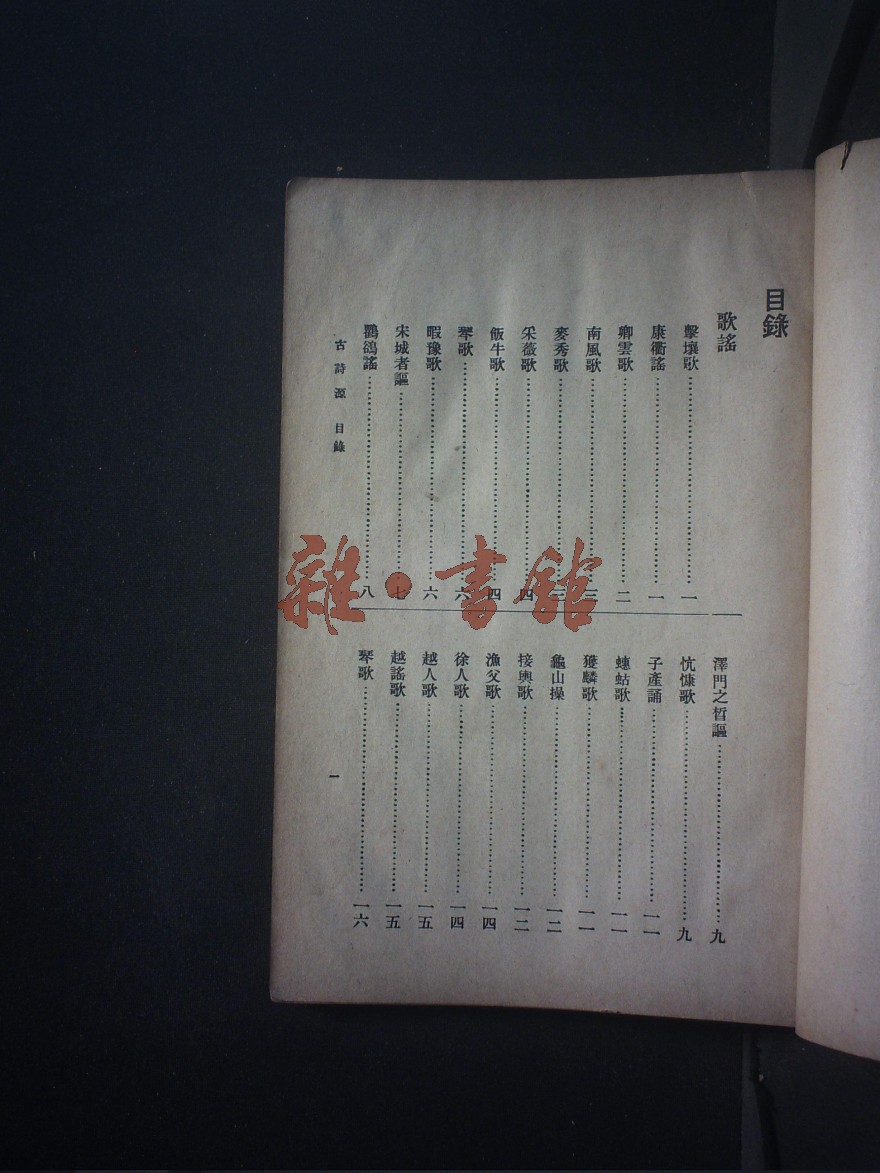 目錄
歌謠
擊壤歌……一
康衢謠……一
卿雲歌……二
南風歌……三
麥秀歌……三
采薇歌……四
飯牛歌……四
琴歌……六
暇豫歌……六
宋城者謳……七
鸜鵒謠……八
澤門之晳謳……九
忼慷歌……九
子產誦……一一
蟪蛄歌……一一
獲麟歌……一一
龜山操……一二
接輿歌……一二
漁父歌……一四
徐人歌……一四
越人歌……一五
越謠歌……一五
琴歌……一六
古詩源 目錄
一
雜·書館